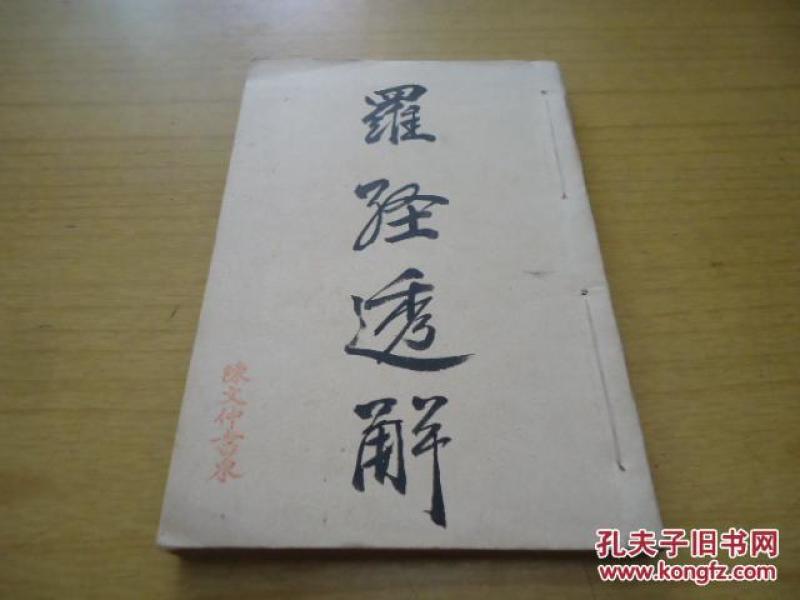 羅經透解
陳文仲書泉
孔夫子旧书网
www.kongfz.com